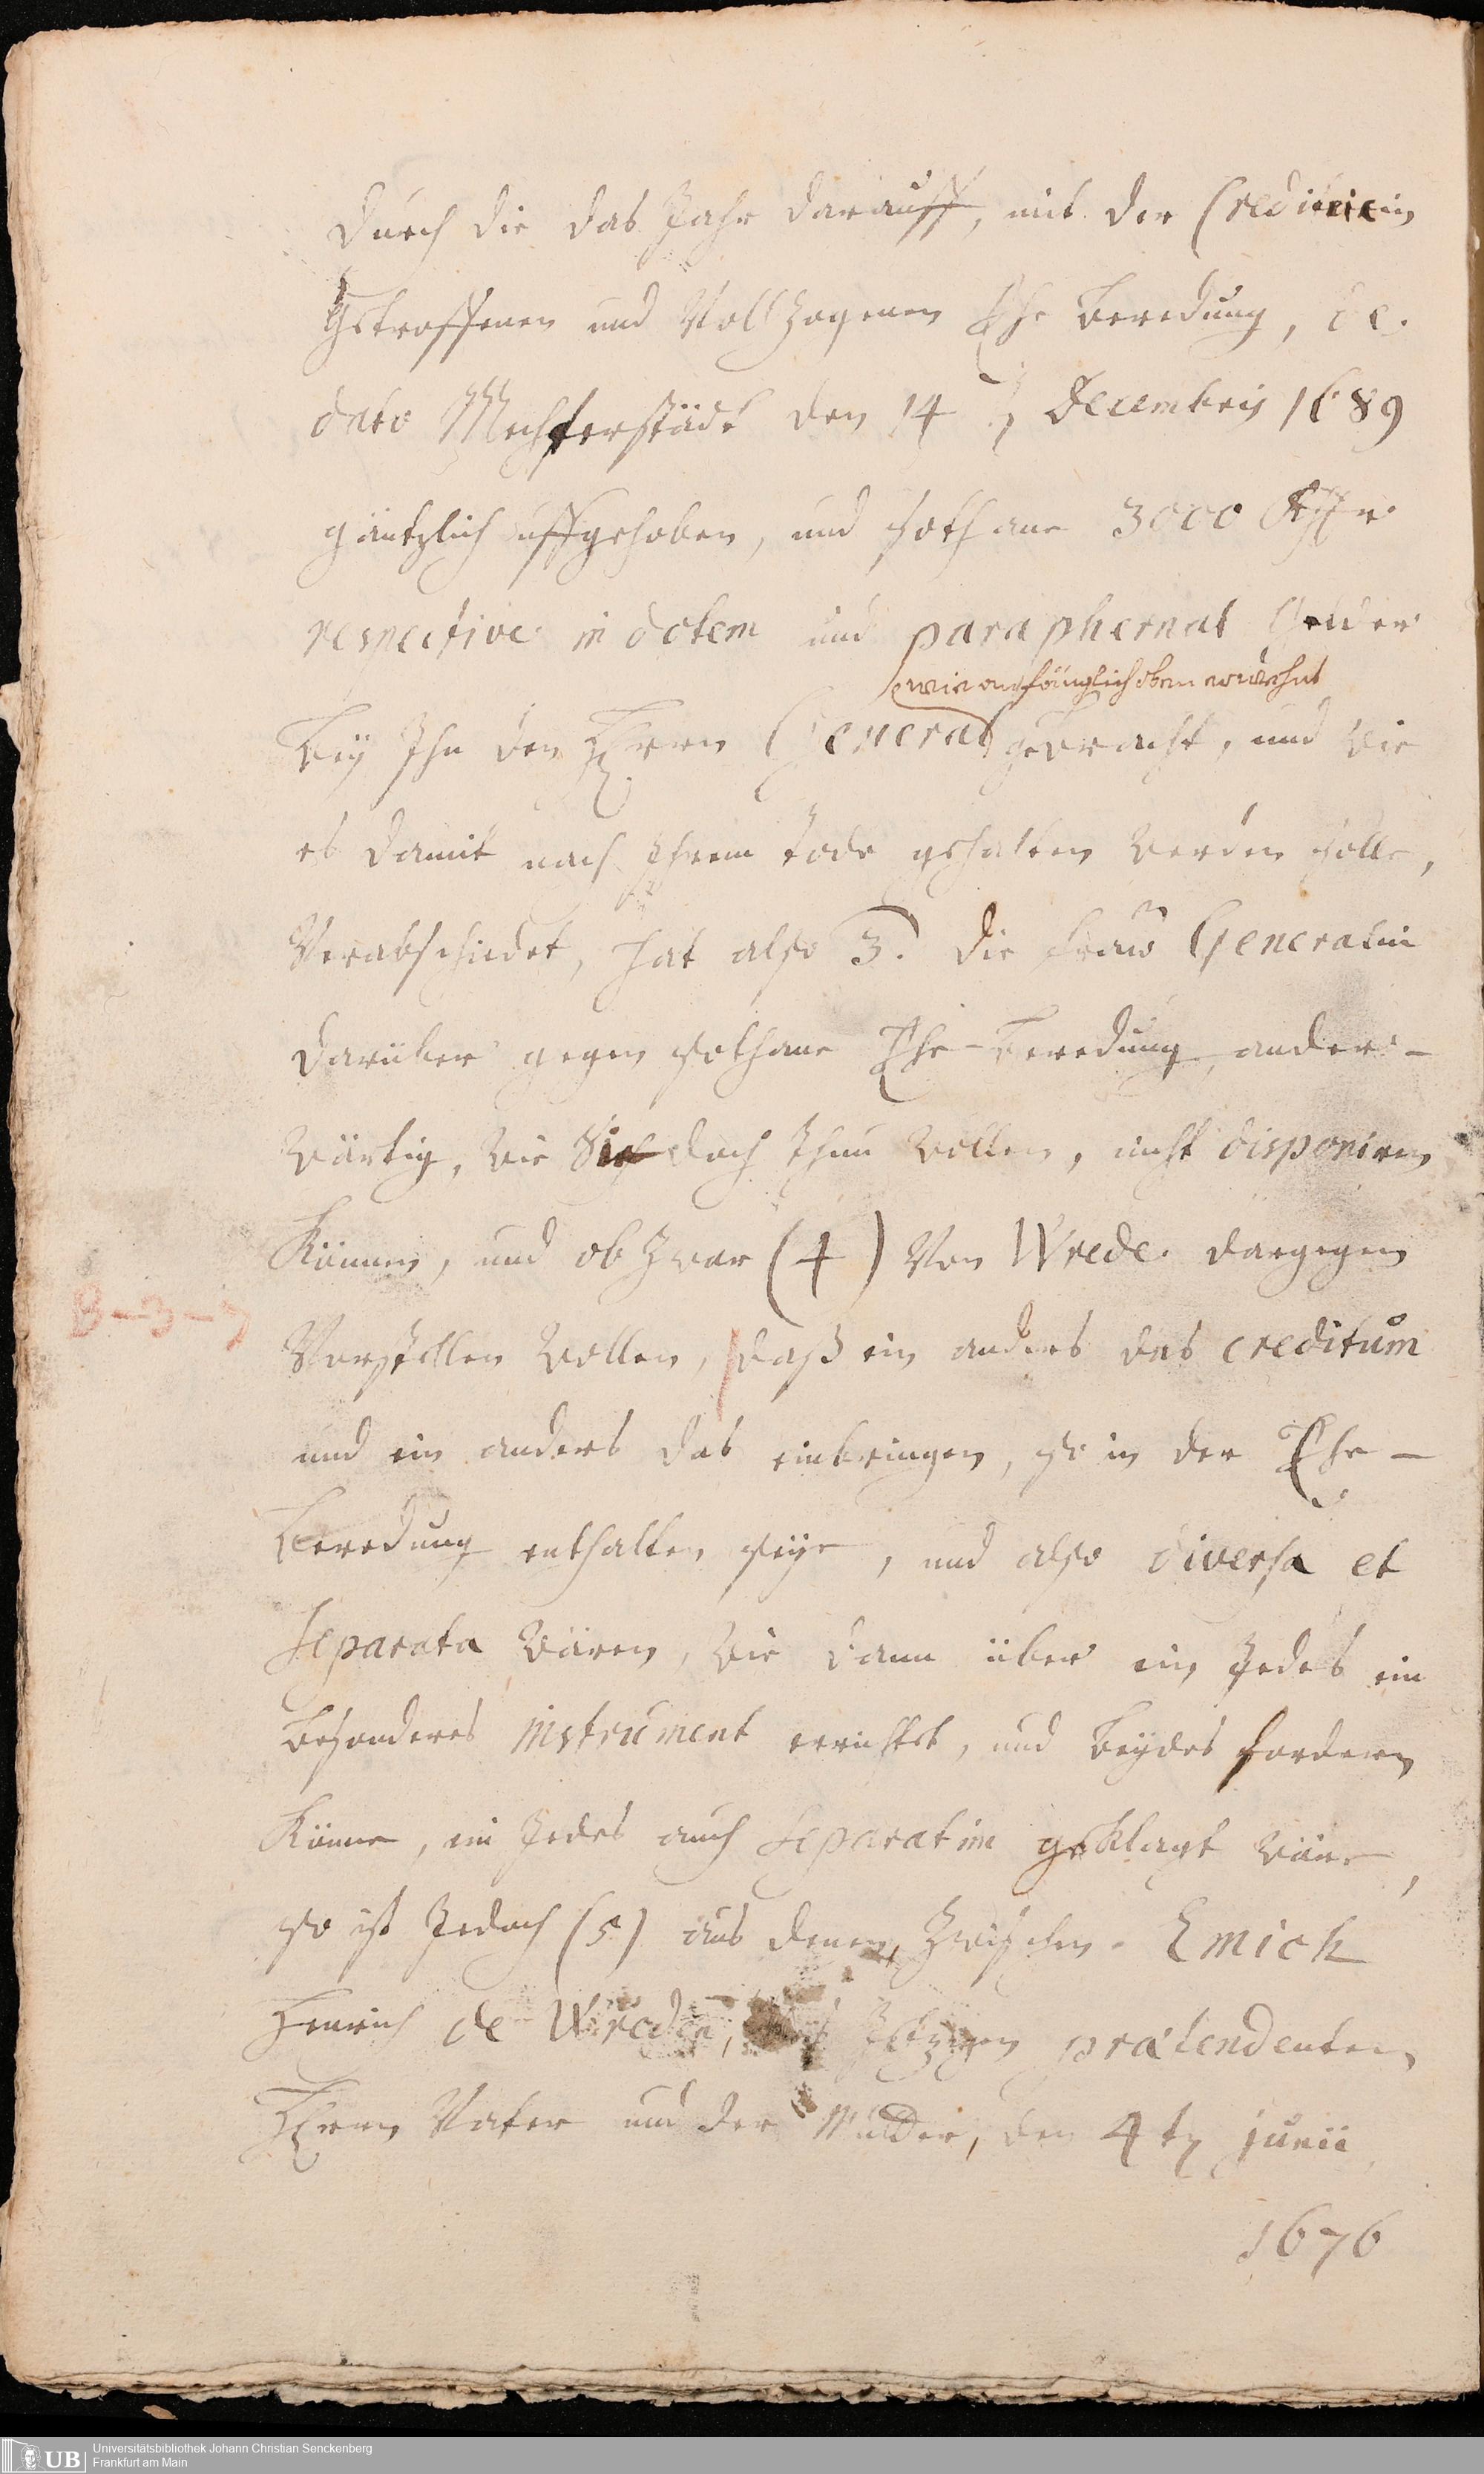 durch die das Jahr darauff, mit der Creditricin
Getroffenen und Vollzogenen Ehe Beredung, de
dato Mechterstädt den 14 Decembris 1689
gäntzlich uffgehoben, und sothane 3000 Rthlr
respective in dotem und paraphernal Gelder
wie anfänglich oben erwehnt
bey Ihn den Herrn General gebracht, und wie
es damit nach Ihrem Tode gehalten werden solle,
Verabschiedet, hat also 3. die Frau Generalin
darüber gegen sothane Ehe-Beredung ander-
wärtig, wie Sie doch Thun wollen, nicht disponiren
Können, und ob Zwar (4) Von Wrede dargegen
B-3-7
Vorstellen wollen, daß ein anders das creditum
und ein anders das einbringen, so in der Ehe-
Beredung enthalten seye, und also diversa et
separata wären, wie dann über ein Jedes ein
besonderes instrument errichtet, und beydes fordern
Könne, ein Jedes auch separatim geklagt wäre,
so ist Jedoch (5) aus denen, Zwischen Emich
Henrich de Wreden, Jetzigen prætendenten
Herrn Vater und der Mutter, den 4 tn junii
1676
Universitätsbibliothek Johann Christian Senckenberg
UB
Frankfurt am Main